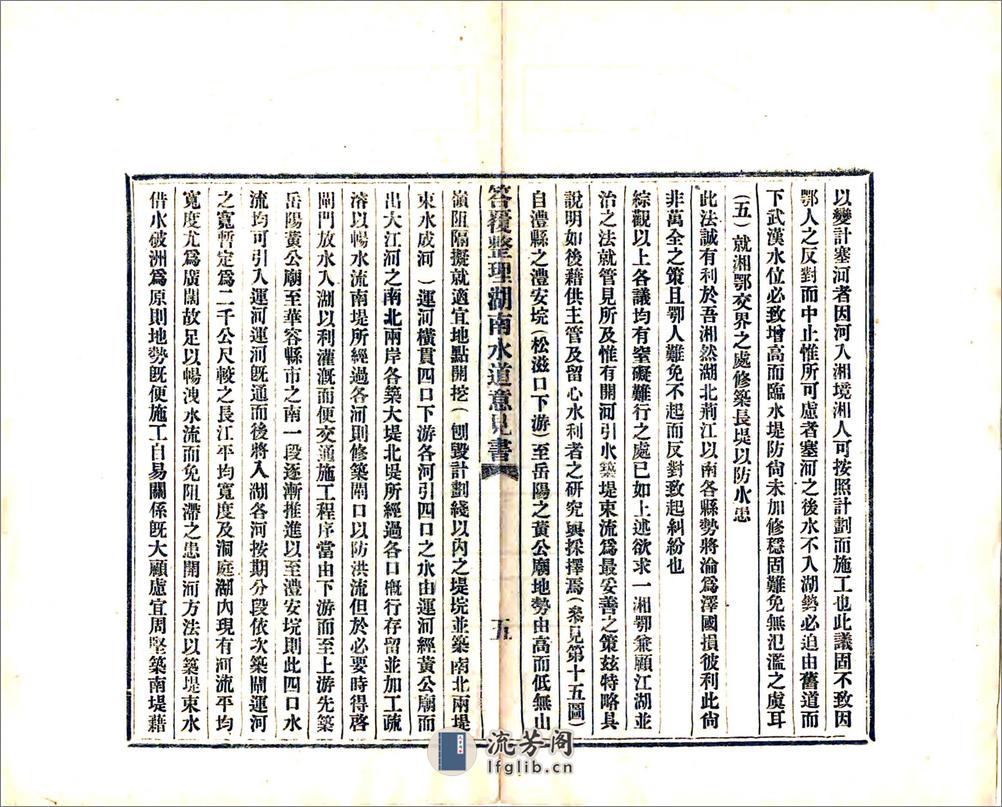 以變計塞河者因河入湘境湘人可按照計劃而施工也此議固不致因
鄂人之反對而中止惟所可慮者塞河之後水不入湖勢必迫由舊道而
下武漢水位必致增高而臨水堤防尙未加修穩固難免無氾濫之虞耳
(五)就湘鄂交界之處修築長堤以防水患
此法誠有利於吾湘然湖北荊江以南各縣勢將淪爲澤國損彼利此尙
非萬全之策且鄂人難免不起而反對致起糾紛也
綜觀以上各議均有窒礙難行之處已如上述欲求一湘鄂兼顧江湖並
治之法就管見所及惟有開河引水築堤束流爲最妥善之策玆特略具
說明如後藉供主管及留心水利者之研究與採擇焉(參見第十五圖)
自澧縣之澧安垸(松滋口下游)至岳陽之黃公廟地勢由高而低無山
答覆整理湖南水道意見書
五
嶺阻隔擬就適宜地點開挖(刨毀計劃綫以內之堤垸並築南北兩堤
束水成河)運河橫貫四口下游各河引四口之水由運河經黃公廟而
出大江河之南北兩岸各築大堤北堤所經過各口槪行存留並加工疏
濬以暢水流南堤所經過各河則修築閘口以防洪流但於必要時得啓
閘門放水入湖以利灌漑而便交通施工程序當由下游而至上游先築
岳陽黃公廟至華容縣市之南一段逐漸推進以至澧安垸則此四口水
流均可引入運河運河旣通而後將入湖各河按期分段依次築閘運河
之寬暫定爲二千公尺較之長江平均寬度及洞庭湖內現有河流平均
寬度尤爲廣闊故足以暢洩水流而免阻滯之患開河方法以築堤束水
借水破洲爲原則地勢旣便施工自易關係旣大顧慮宜周堅築南堤藉
流芳阁
lfglib.cn